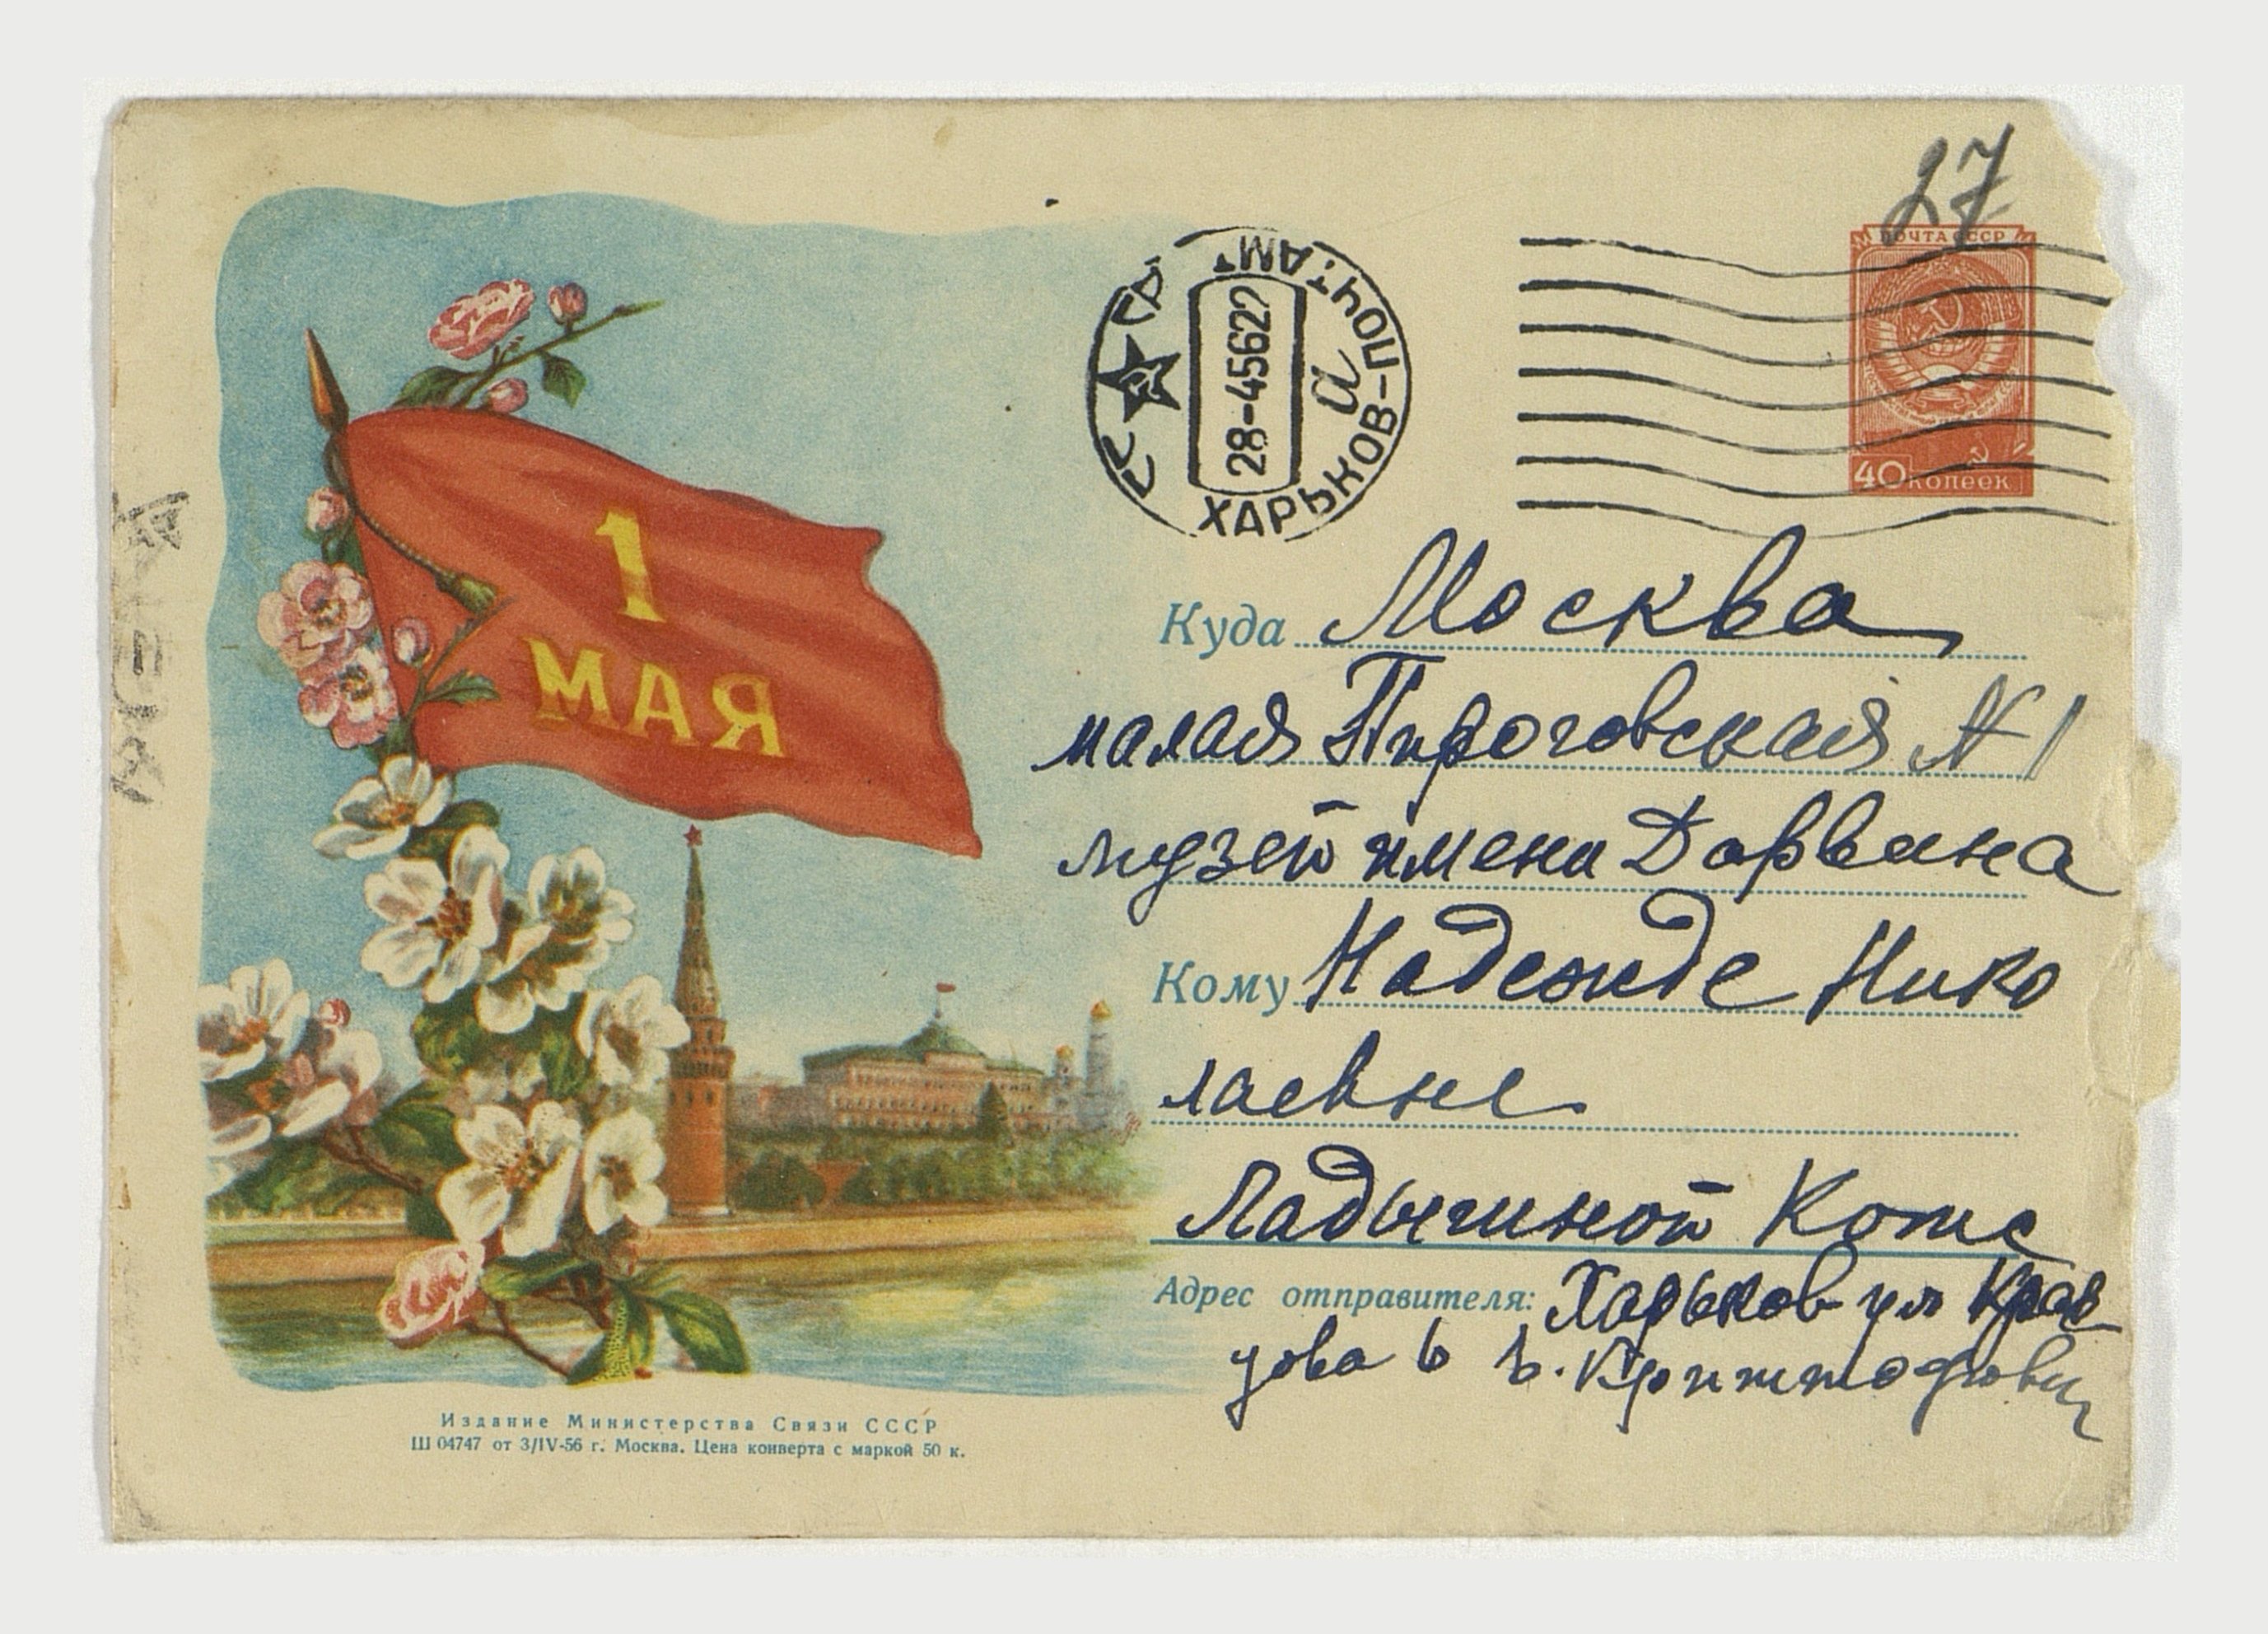 27
ПОЧТА СССР
40 копеек
СССР
ХАРЬКОВ-ПОЧТАМТ
28-45622
а
1
МАЯ
Куда Москва
малая Пироговская N 1
музей имени Дарвина
Кому Надежде Нико
лаевне
Ладыгиной Котс
Адрес отправителя: Харьков ул Крав
цова 6
Издание Министерства Связи СССР
Ш 04747 от 3/IV-56 г. Москва. Цена конверта с маркой 50 к.